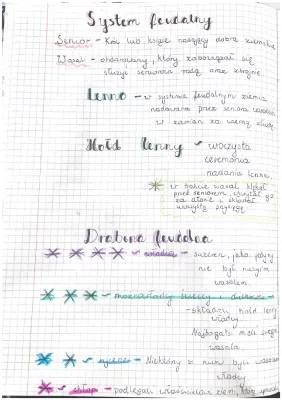 System feudalny
Senior - Król lub książę nadający dobra ziemskie
Wasal - obdarowany, który zobowiązał się
służyć seniorowi radą oraz zbrojnie.
Lenno - w systemie feudalnym ziemia
nadawana przez seniora wasalowi
w zamian za wierną służbę
Hołd lenny - uroczysta
ceremonia
nadania lenna.
w trakcie wasal klękał
przed seniorem, chwytał go
za dłonie i składał
uroczystą przysięgę
Drabina feudalna
władca - suzeren, jako jedyny
nie był niczyim
wasalem
możnowładcy
- składali hołd lenny
władcy
Najbogatsi mieli swego
wasala
rycerze - Niektórzy z nich byli wasalami
władcy
chłop - podlegali właścicielom ziem,